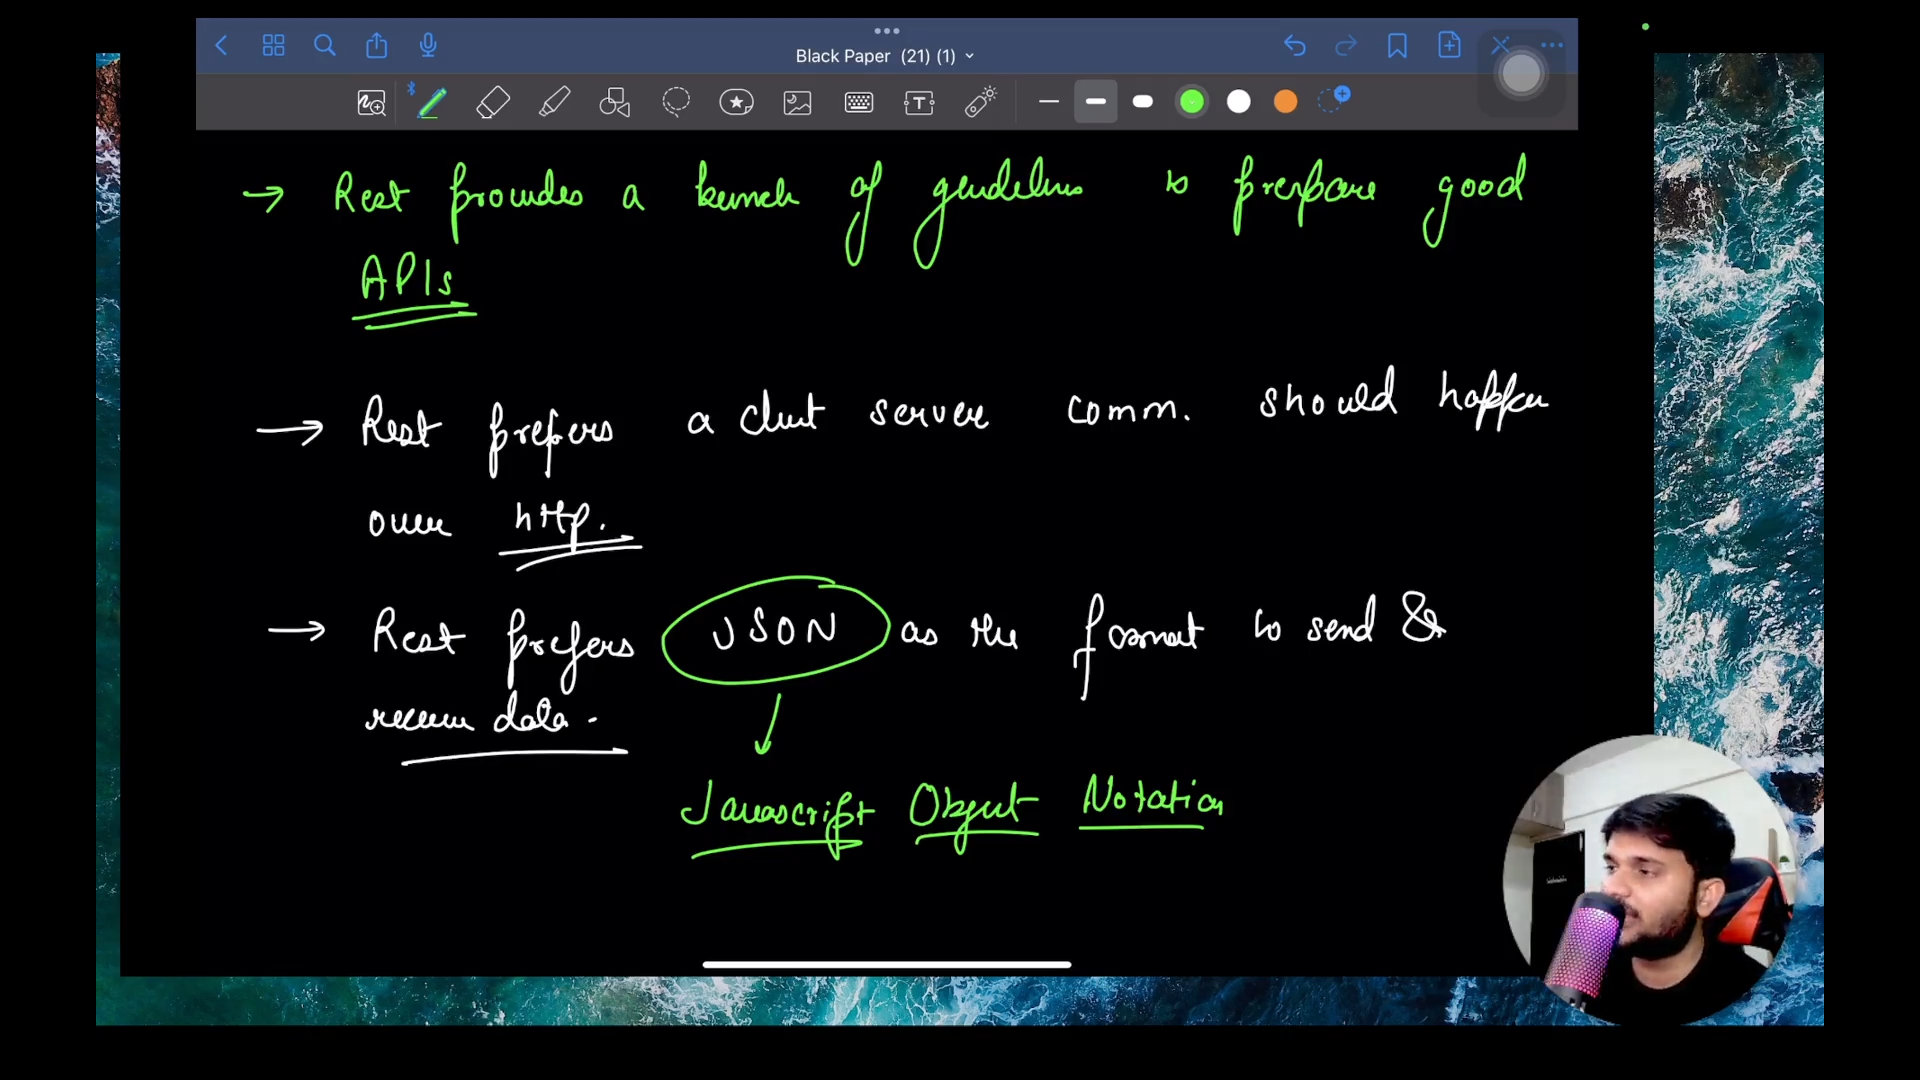 Black Paper (21) (1)
→ Rest provides a bunch of guidelines to prerpare good
APIs
→ Rest prefers a client server comm. should happen
over http.
→ Rest prefers JSON as the format to send &
receive data.
Javascript Object Notation